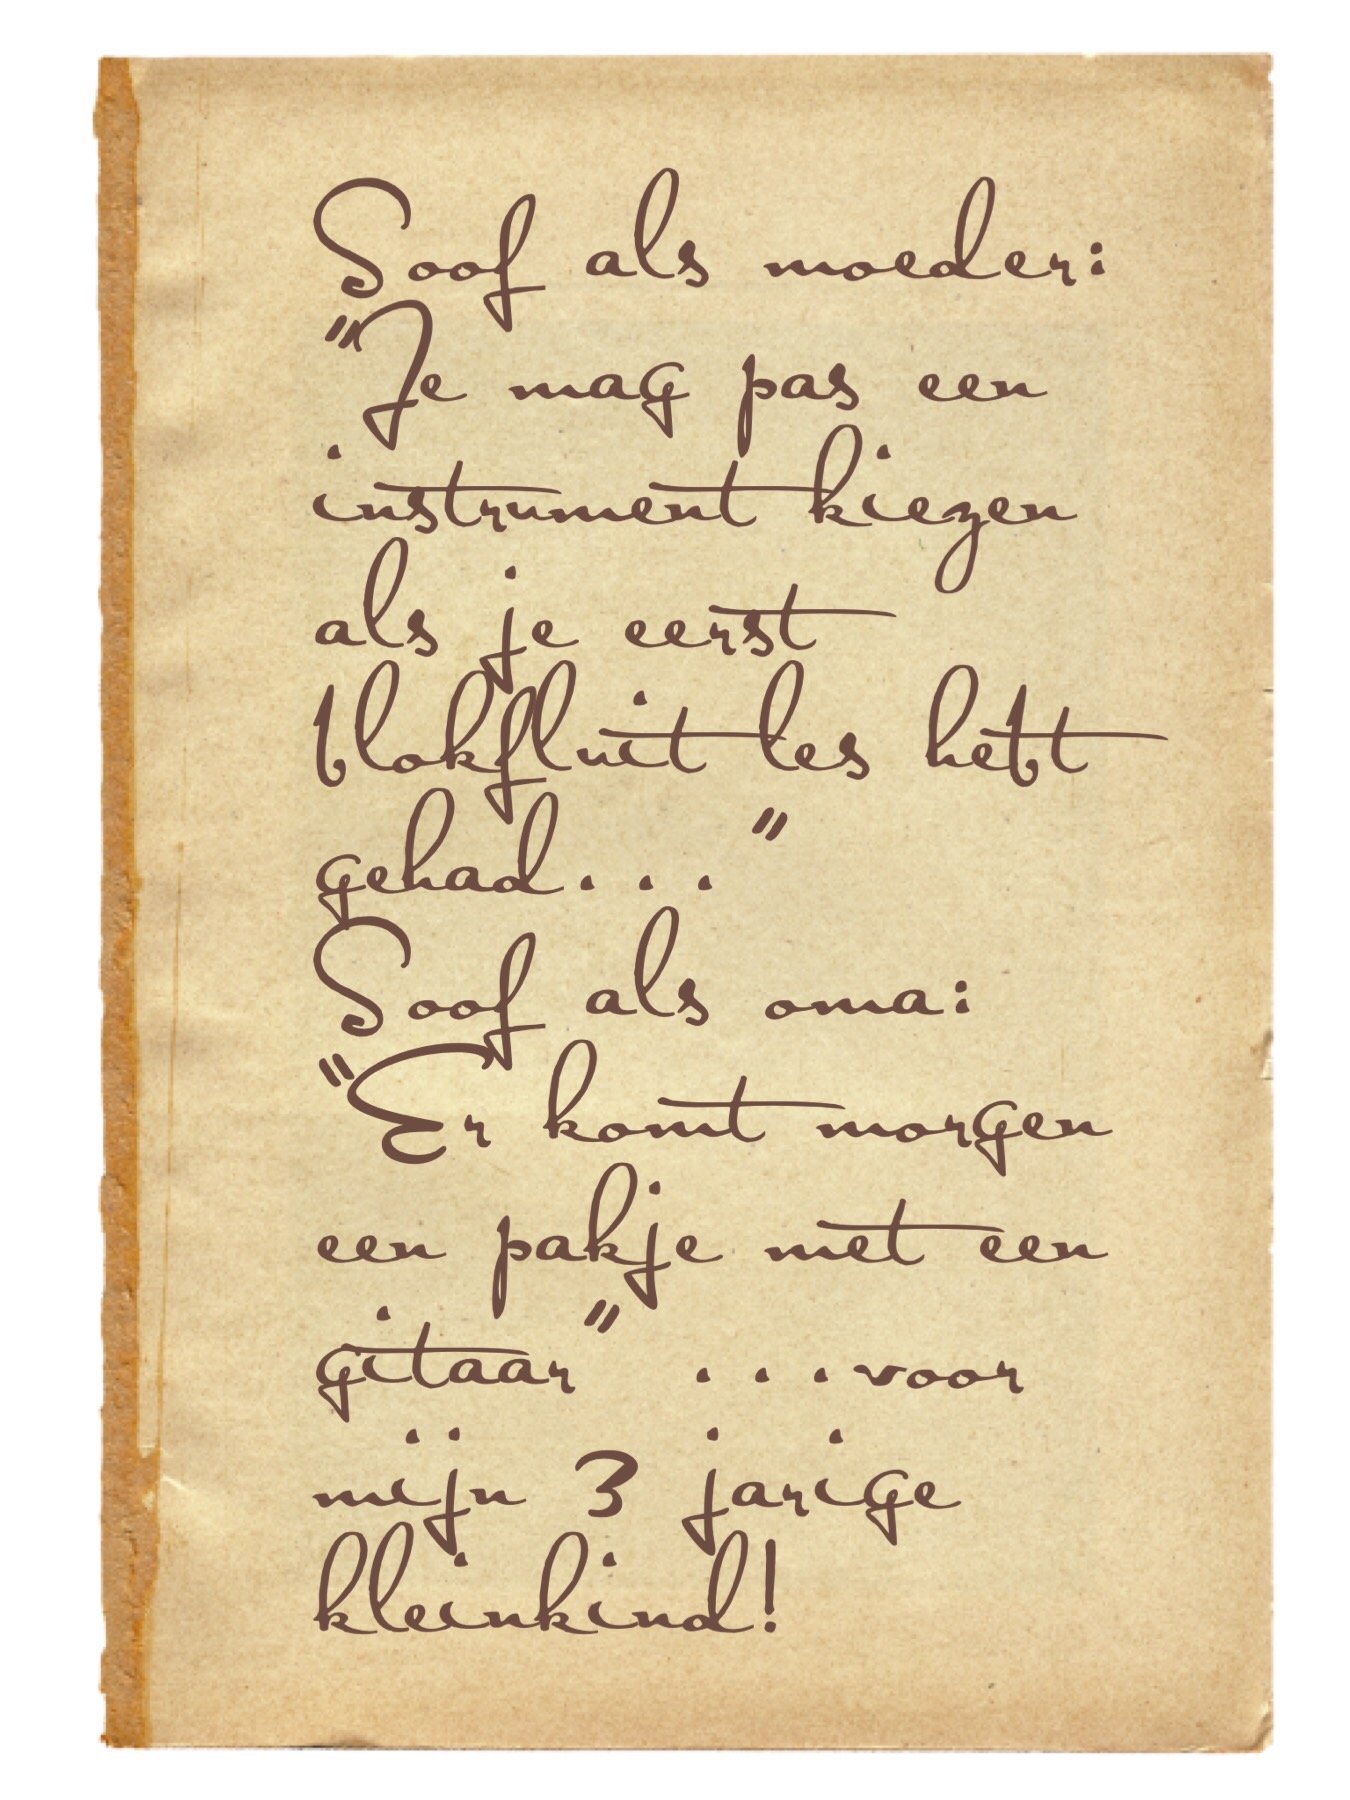 Soof als moeder:
"Je mag pas een
instrument kiezen
als je eerst
blokfluit les hebt
gehad..."
Soof als oma:
"Er komt morgen
een pakje met een
gitaar" ...voor
mijn 3 jarige
kleinkind!